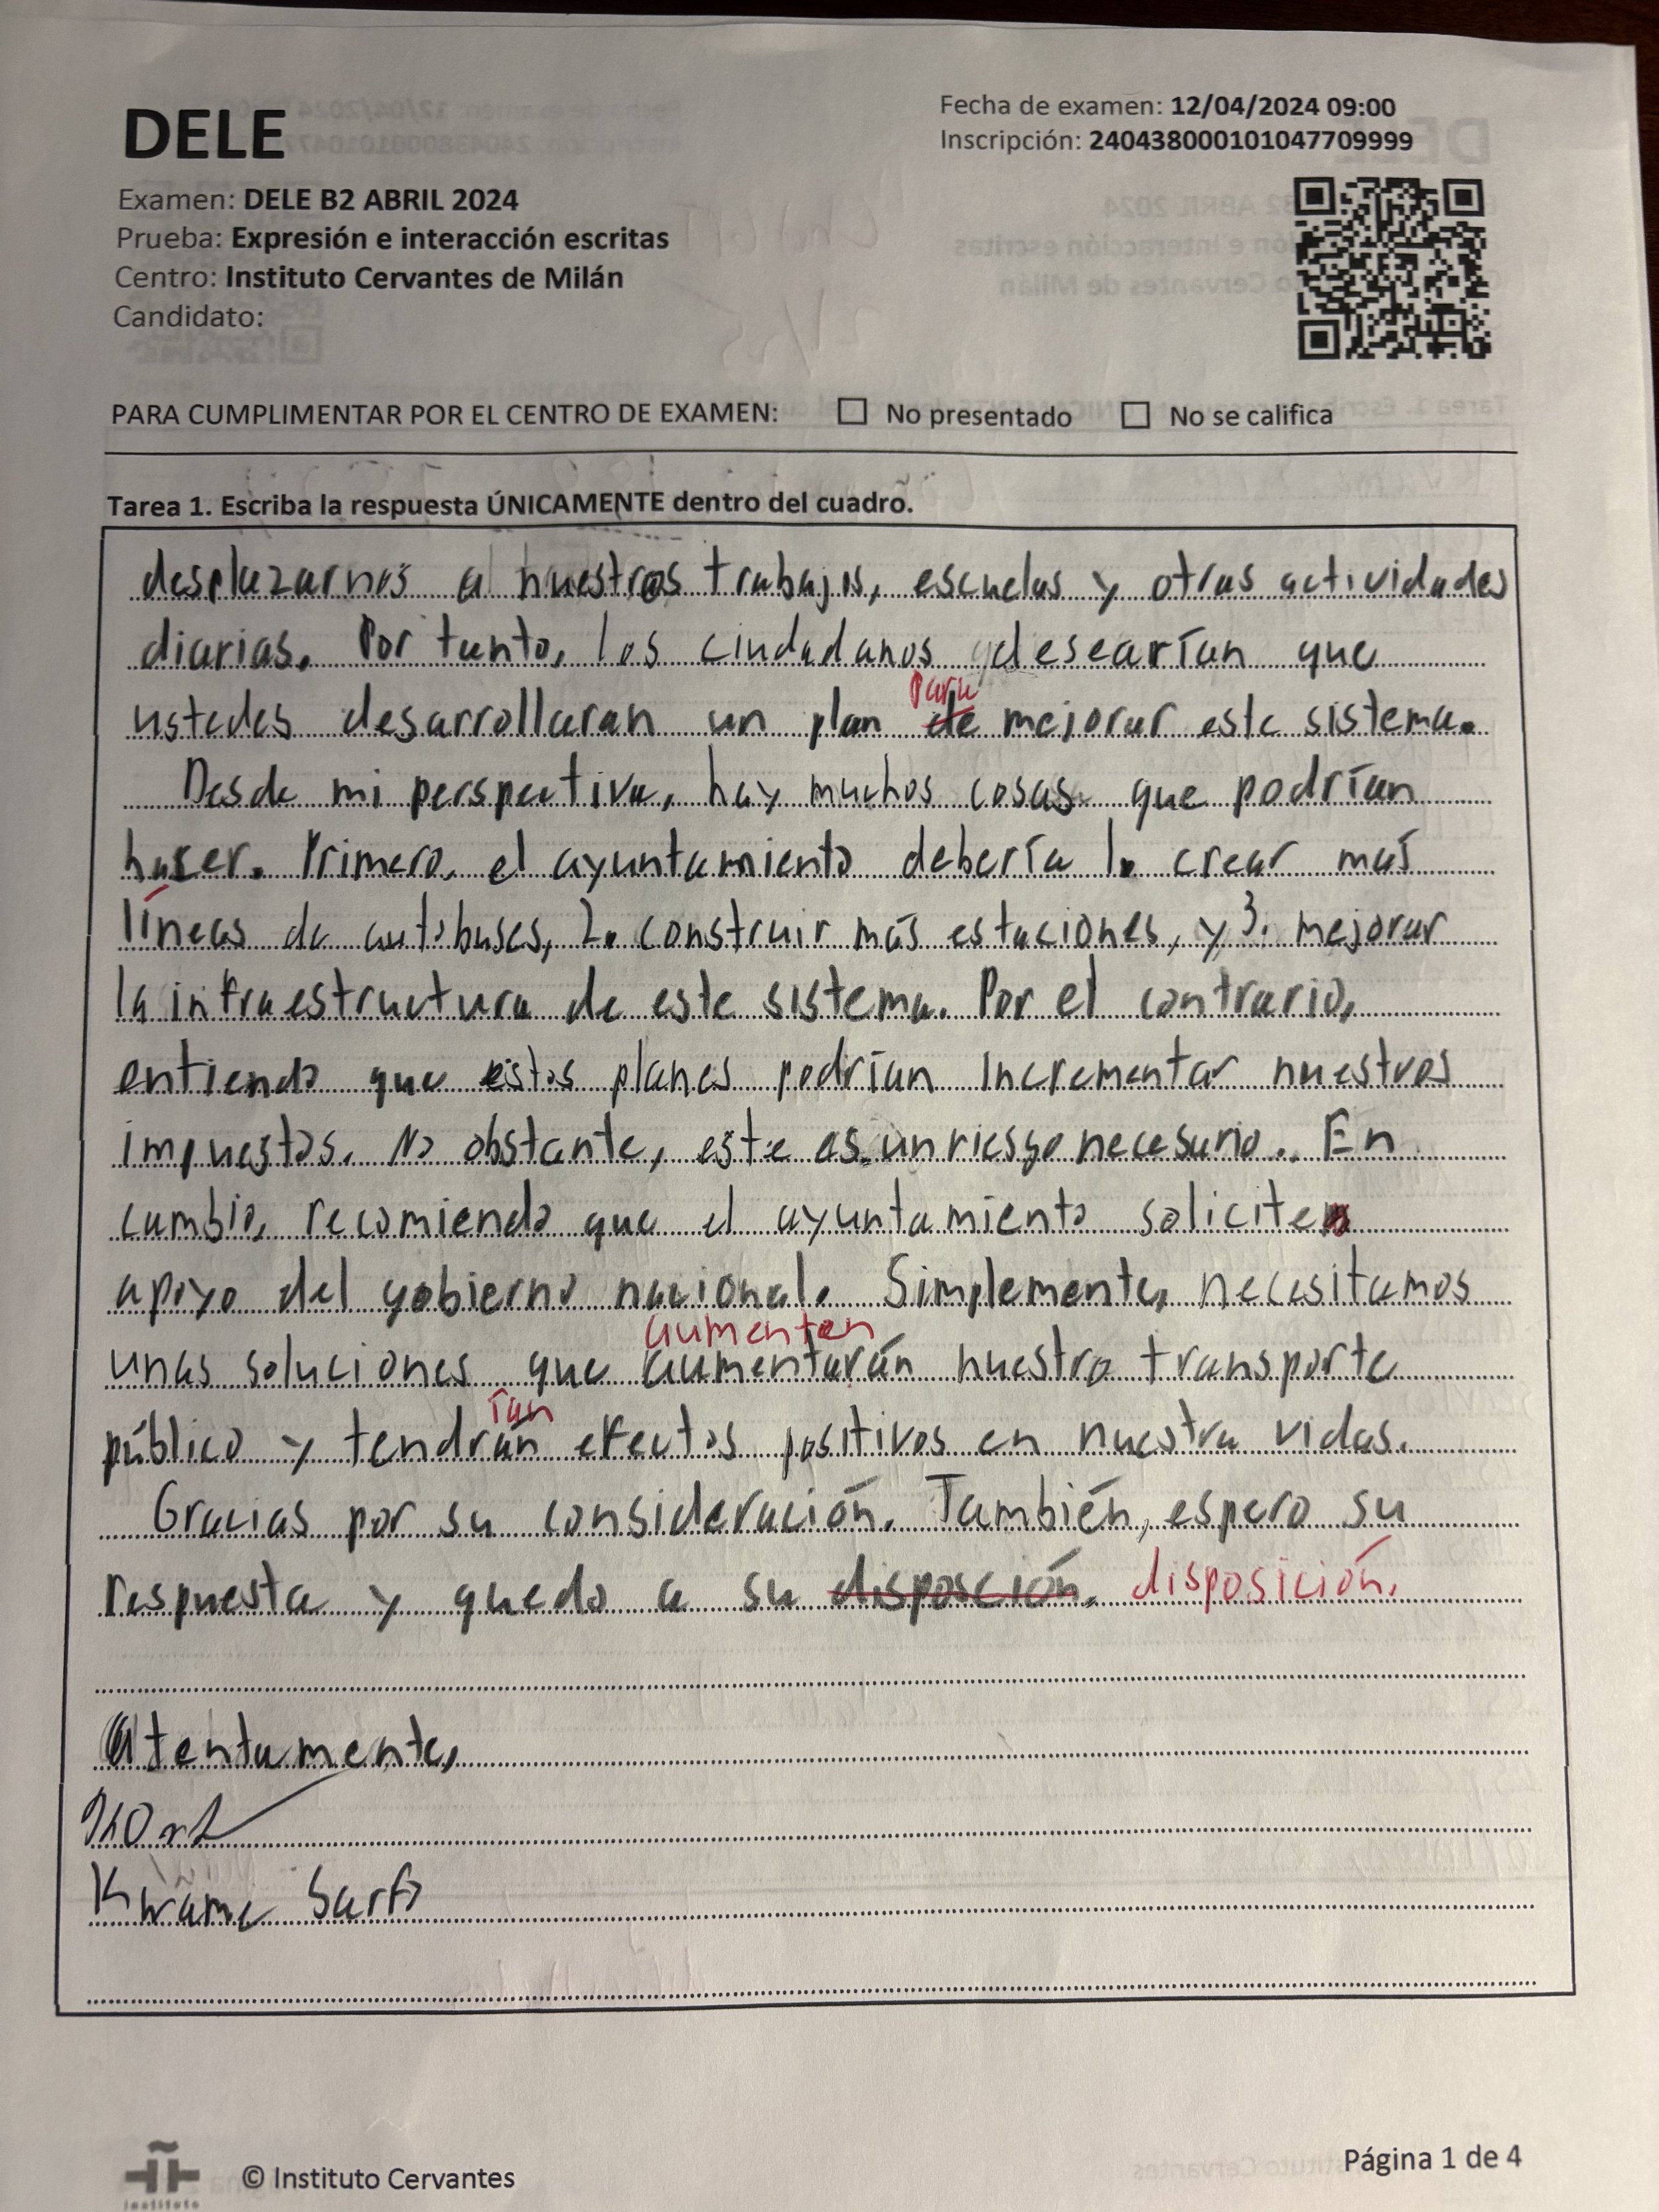 DELE
Fecha de examen: 12/04/2024 09:00
Inscripción: 240438000101047709999
Examen: DELE B2 ABRIL 2024
Prueba: Expresión e interacción escritas
Centro: Instituto Cervantes de Milán
Candidato:
PARA CUMPLIMENTAR POR EL CENTRO DE EXAMEN: No presentado No se califica
Tarea 1. Escriba la respuesta ÚNICAMENTE dentro del cuadro.
desplazarnos a nuestros trabajos, escuelas y otras actividades
diarias. Por tanto, los ciudadanos desearían que
para
ustedes desarrollaran un plan de mejorar este sistema.
Desde mi perspectiva, hay muchos cosas que podrían
hacer. Primero, el ayuntamiento debería 1. crear más
líneas de autobuses, 2. construir más estaciones, y 3. mejorar
la infraestructura de este sistema. Por el contrario,
entiendo que estos planes podrían incrementar nuestros
impuestos. No obstante, este es un riesgo necesario. En
cambio, recomiendo que el ayuntamiento solicite
apoyo del gobierno nacional. Simplemente, necesitamos
aumenten
unas soluciones que aumentarán nuestro transporte
ían
público y tendrán efectos positivos en nuestra vidas.
Gracias por su consideración. También, espero su
respuesta y quedo a su disposción. disposición.
Atentamente,
Kwame Sarfo
© Instituto Cervantes
Página 1 de 4